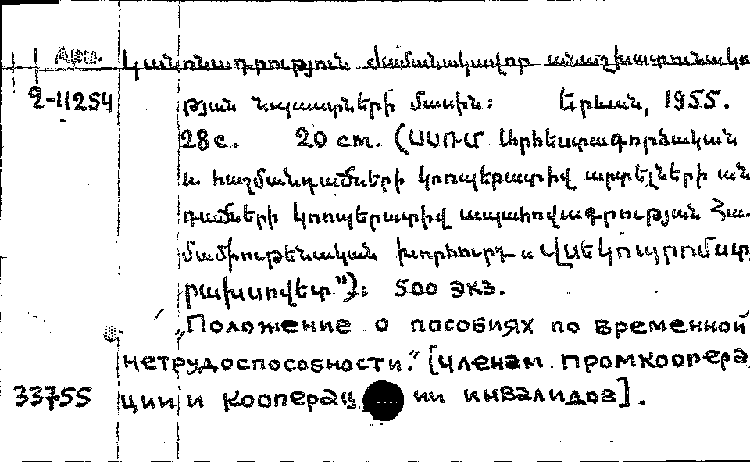 Арм. Կանոնադրություն ժամանակավոր անաշխատունակո
2-11254 թյան նպաստների մասին: Երևան, 1955.
28с. 20 cm. (ՍՍՌՄ Արհեստագործական
և հաշմանդամների կոոպերատիվ արտելների ան
դամների կոոպերատիվ ապահովագրության Հա
մամիութենական խորհուրդ „Վսեկոպրոմստ
րախսովետ"): 500 экз.
„Положение о пособиях по временной
нетрудоспособности." [членам промкоопера
33755 ции и кооперац ии инвалидов].